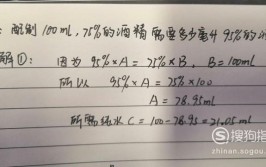 配制100ml,75%的酒精需要多少毫升95%的酒
解①: 因为 95%×A = 75%×B, B=100ml
所以 95%×A = 75%×100
A = 78.95ml
所需纯水C = 100-78.95 = 21.05ml
搜狗指南
zhinan.sogou.com